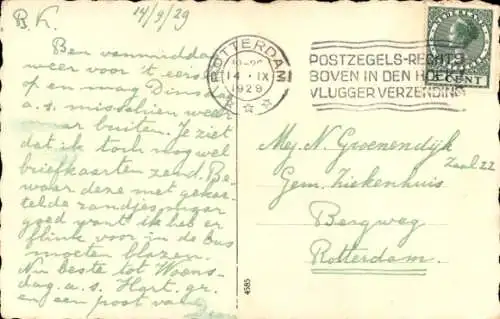 B.K. 14/9/29
Ben vanmiddag
weer voor 't eerst
op en mag Dinsd.
a.s. misschien weer
naar buiten. Je ziet
dat ik toch nog wel
briefkaarten zend. Be-
waar deze met gekar-
telde randjes maar
goed want ik heb er
flink voor in de bus
moeten blazen.
Nu beste tot Woens-
dag a.s. Hart. gr.
en een poot van
ROTTERDAM
14 IX
1929
POSTZEGELS-RECHTS
BOVEN IN DEN HOEK
VLUGGER VERZENDING
NEDERLAND
CENT
Mej. N. Groenendijk
Zaal 22
Gem. Ziekenhuis
Bergweg
Rotterdam.
4585